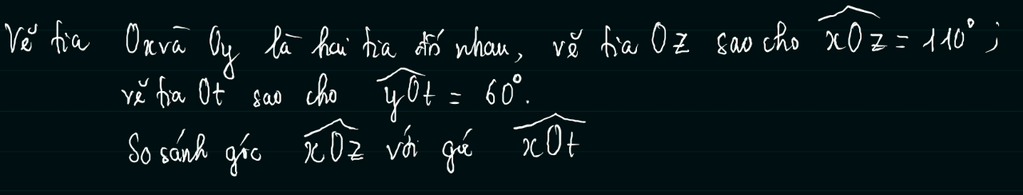 Vẽ tia Ox và Oy là hai tia đối nhau, vẽ tia Oz sao cho xOz = 110°;
vẽ tia Ot sao cho yOt = 60°.
So sánh góc xOz với gó xOt